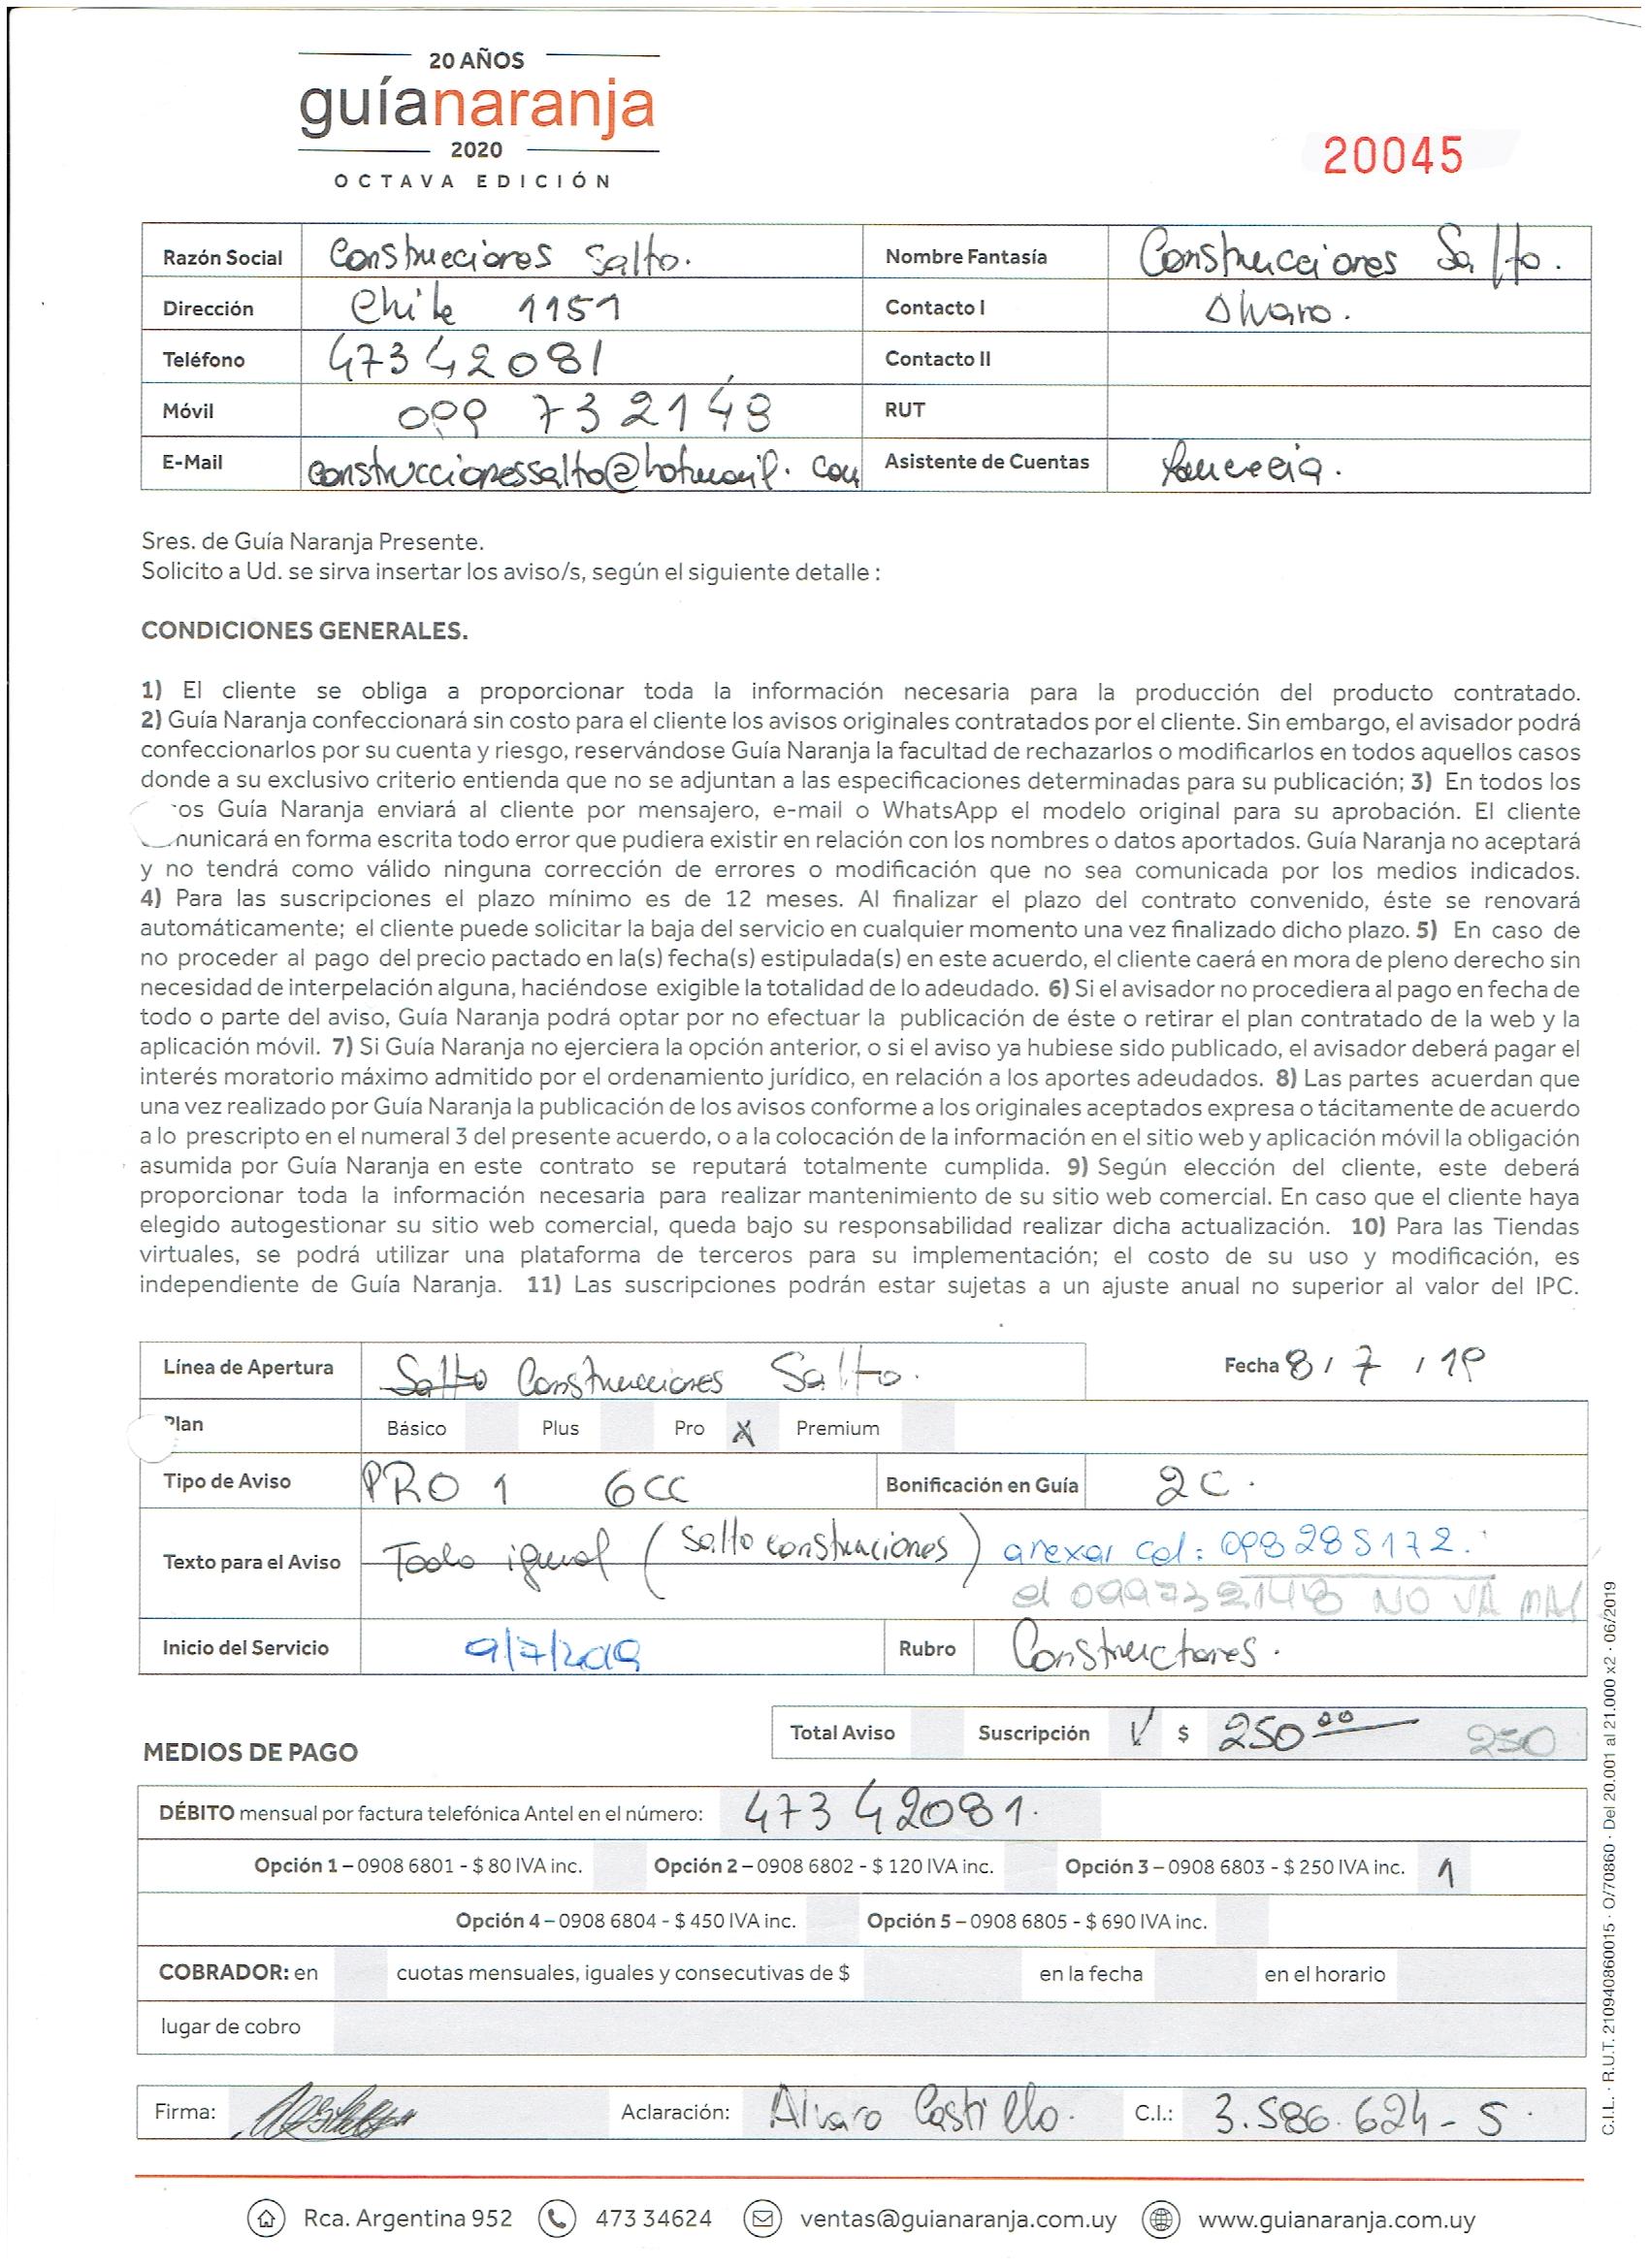 20 AÑOS
guíanaranja
2020
OCTAVA EDICIÓN
20045
Razón Social Construcciones Salto. Nombre Fantasía Construcciones Salto.
Dirección Chile 1151 Contacto I Alvaro.
Teléfono 473 42081 Contacto II
Móvil 099 732148 RUT
E-Mail construccionessalto@hotmail.com Asistente de Cuentas
Sres. de Guía Naranja Presente.
Solicito a Ud. se sirva insertar los aviso/s, según el siguiente detalle :
CONDICIONES GENERALES.
1) El cliente se obliga a proporcionar toda la información necesaria para la producción del producto contratado.
2) Guía Naranja confeccionará sin costo para el cliente los avisos originales contratados por el cliente. Sin embargo, el avisador podrá
confeccionarlos por su cuenta y riesgo, reservándose Guía Naranja la facultad de rechazarlos o modificarlos en todos aquellos casos
donde a su exclusivo criterio entienda que no se adjuntan a las especificaciones determinadas para su publicación; 3) En todos los
os Guía Naranja enviará al cliente por mensajero, e-mail o WhatsApp el modelo original para su aprobación. El cliente
municará en forma escrita todo error que pudiera existir en relación con los nombres o datos aportados. Guía Naranja no aceptará
y no tendrá como válido ninguna corrección de errores o modificación que no sea comunicada por los medios indicados.
4) Para las suscripciones el plazo mínimo es de 12 meses. Al finalizar el plazo del contrato convenido, éste se renovará
automáticamente; el cliente puede solicitar la baja del servicio en cualquier momento una vez finalizado dicho plazo. 5) En caso de
no proceder al pago del precio pactado en la(s) fecha(s) estipulada(s) en este acuerdo, el cliente caerá en mora de pleno derecho sin
necesidad de interpelación alguna, haciéndose exigible la totalidad de lo adeudado. 6) Si el avisador no procediera al pago en fecha de
todo o parte del aviso, Guía Naranja podrá optar por no efectuar la publicación de éste o retirar el plan contratado de la web y la
aplicación móvil. 7) Si Guía Naranja no ejerciera la opción anterior, o si el aviso ya hubiese sido publicado, el avisador deberá pagar el
interés moratorio máximo admitido por el ordenamiento jurídico, en relación a los aportes adeudados. 8) Las partes acuerdan que
una vez realizado por Guía Naranja la publicación de los avisos conforme a los originales aceptados expresa o tácitamente de acuerdo
a lo prescripto en el numeral 3 del presente acuerdo, o a la colocación de la información en el sitio web y aplicación móvil la obligación
asumida por Guía Naranja en este contrato se reputará totalmente cumplida. 9) Según elección del cliente, este deberá
proporcionar toda la información necesaria para realizar mantenimiento de su sitio web comercial. En caso que el cliente haya
elegido autogestionar su sitio web comercial, queda bajo su responsabilidad realizar dicha actualización. 10) Para las Tiendas
virtuales, se podrá utilizar una plataforma de terceros para su implementación; el costo de su uso y modificación, es
independiente de Guía Naranja. 11) Las suscripciones podrán estar sujetas a un ajuste anual no superior al valor del IPC.
Línea de Apertura Salto Construcciones Salto. Fecha 8 / 7 / 19
Plan Básico Plus Pro X Premium
Tipo de Aviso PRO 1 6CC Bonificación en Guía 2C.
Texto para el Aviso Todo igual (Salto construciones) anexar cel: 098 285172.
el 099732148 NO VA MAS
Inicio del Servicio 9/7/2019 Rubro Constructores.
Total Aviso Suscripción √ $ 250 00 250
MEDIOS DE PAGO
DÉBITO mensual por factura telefónica Antel en el número: 473 42081.
Opción 1 – 0908 6801 - $ 80 IVA inc. Opción 2 – 0908 6802 - $ 120 IVA inc. Opción 3 – 0908 6803 - $ 250 IVA inc. 1
Opción 4 – 0908 6804 - $ 450 IVA inc. Opción 5 – 0908 6805 - $ 690 IVA inc.
COBRADOR: en cuotas mensuales, iguales y consecutivas de $ en la fecha en el horario
lugar de cobro
Firma: Aclaración: Alvaro Castillo. C.I.: 3.586.624-5.
Rca. Argentina 952 473 34624 ventas@guianaranja.com.uy www.guianaranja.com.uy
C.I.L. · R.U.T. 210940860015 · O/70860 · Del 20.001 al 21.000 x2 · 06/2019